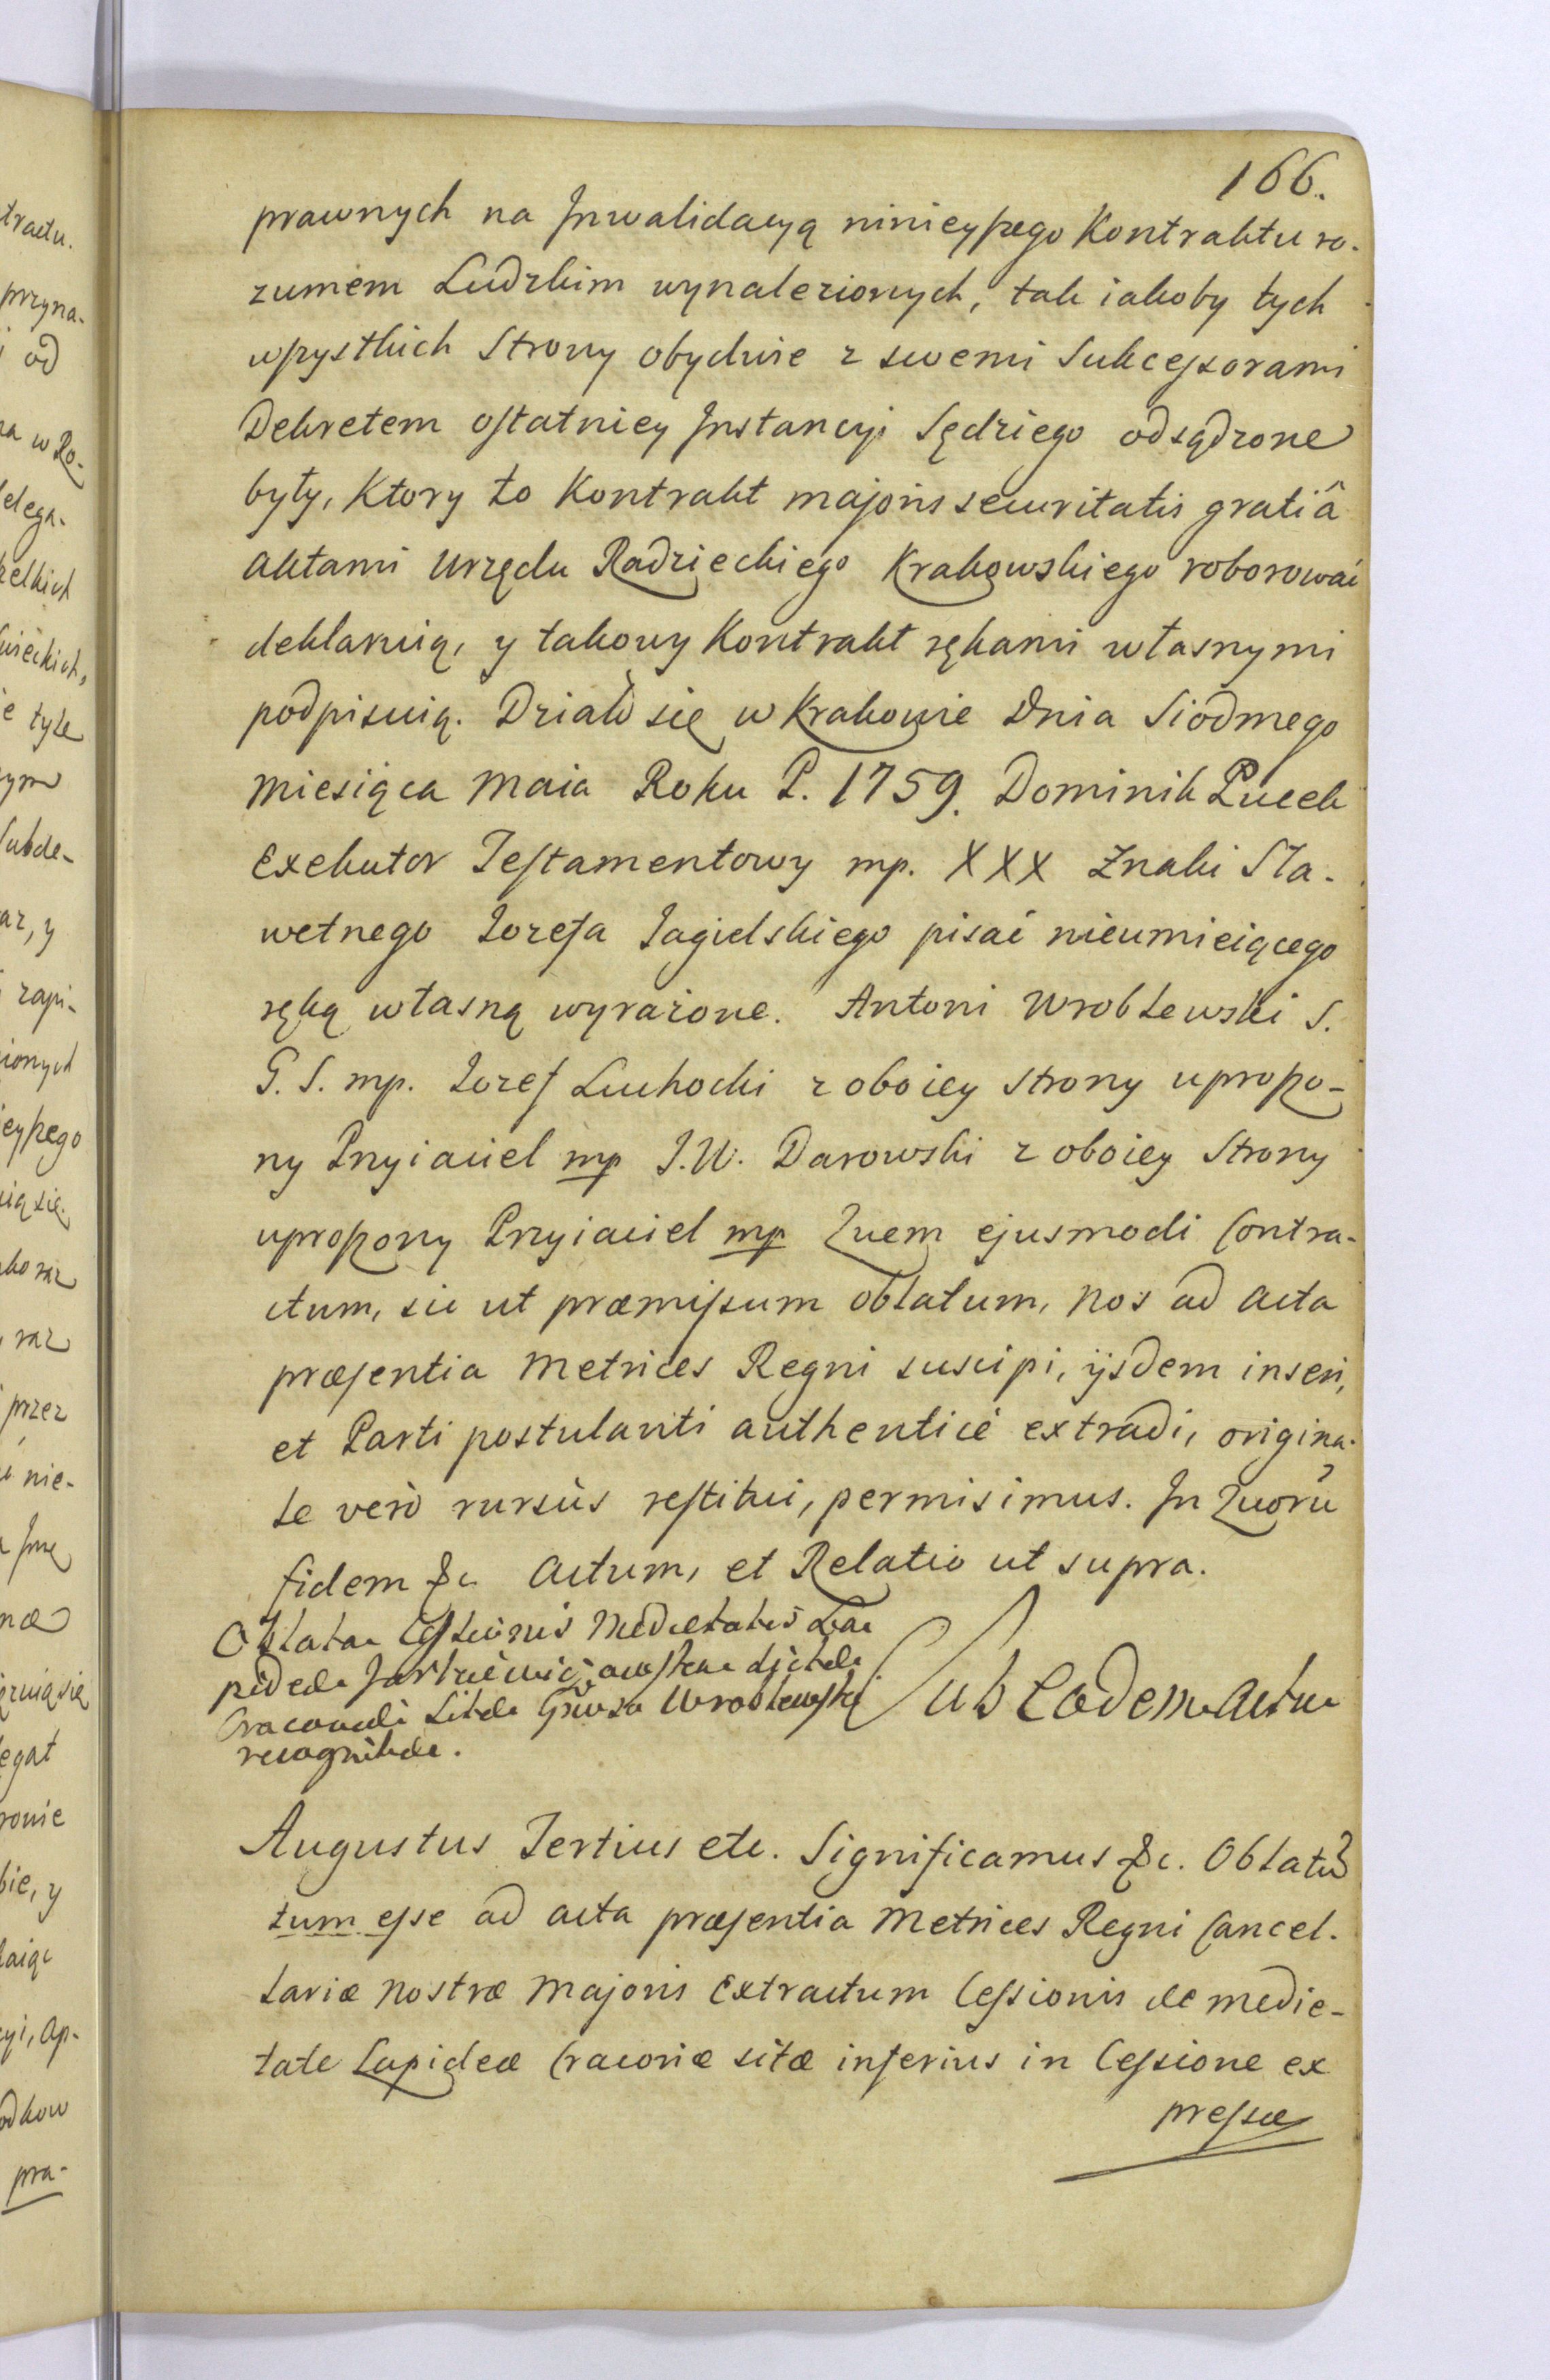 166.
prawnych na Inwalidacyą ninieyszego Kontraktu ro-
zumem Ludzkim wynalezionych, tak iakoby tych
wszystkich Strony obydwie z swemi Sukcessorami
Dekretem ostatniey Instancyi Sędziego odsądzone
były, Ktory to Kontrakt majoris securitatis gratiâ
Aktami Urzędu Radzieckiego Krakowskiego roborować
deklaruią, y takowy Kontrakt rękami własnymi
podpisuią. Działo się w Krakowie Dnia Siodmego
Miesiąca Maia Roku P. 1759. Dominik Pucek
Exekutor Testamentowy mp. XXX Znaki Sła-
wetnego Jozefa Jagielskiego pisać nieumieiącego
ręką własną wyrażone. Antoni Wroblewski S.
G. S. mp. Jozef Luchocki z oboiey Strony uproszo-
ny Przyiaciel mp J. W. Darowski z oboiey Strony
uproszony Przyiaciel mp Quem ejusmodi Contra-
ctum, sic ut præmissum oblatum, Nos ad Acta
præsentia Metrices Regni suscipi, ijsdem inseri,
et Parti postulanti authenticè extradi, origina-
le verò rursùs restitui, permisimus. In Quorũ
fidem &c. Actum, et Relatio ut supra.
Oblata Cessionis Medietatis La-
pideæ dictæ
Cracoviæ Sitæ Wroblewski
recognitæ.
Sub Eodem Actu
Augustus Tertius etc. Significamus &c. Oblatũ
tum esse ad acta præsentia Metrices Regni Cancel-
lariæ Nostræ Majoris Extractum Cessionis de medie-
tate Lapideæ Cracoviæ sitæ inferius in Cessione ex
pressæ
tractu.
przyna-
od
w Ro-
delega-
ie tyle
Subde-
ar, y
zapi-
ionych
eyszego
raz
przez
nie-
egat
ronie
bie, y
cyi, Ap-
odkow
pra-